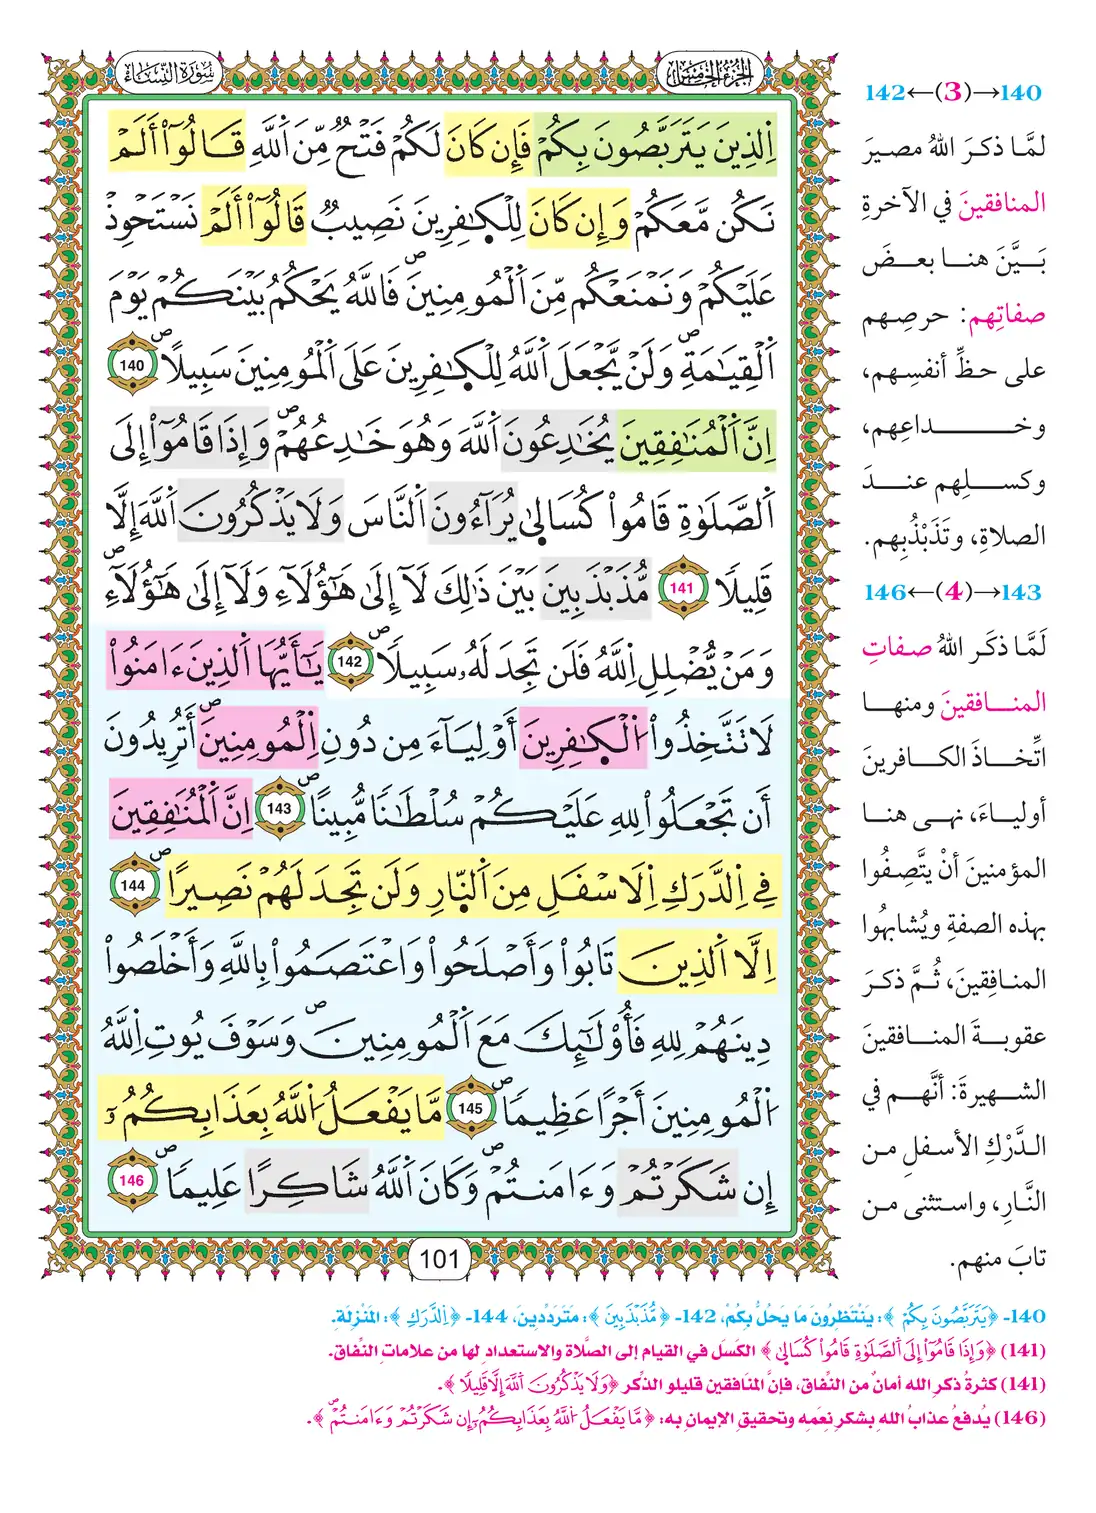 سُورَةُ النِّسَاءِ
الجُزْءُ الخَامِسُ
اِ۬لذِينَ يَتَرَبَّصُونَ بِكُمْ فَإِن كَانَ لَكُمْ فَتْحٌ مِّنَ اَ۬للَّهِ قَالُوٓاْ أَلَمْ
نَكُن مَّعَكُمْ وَإِن كَانَ لِلْكٰ۪فِرِينَ نَصِيبٌ قَالُوٓاْ أَلَمْ نَسْتَحْوِذْ
عَلَيْكُمْ وَنَمْنَعْكُم مِّنَ اَ۬لْمُومِنِينَۖ فَاللَّهُ يَحْكُمُ بَيْنَكُمْ يَوْمَ
اَ۬لْقِيَٰمَةِۖ وَلَنْ يَّجْعَلَ اَ۬للَّهُ لِلْكٰ۪فِرِينَ عَلَى اَ۬لْمُومِنِينَ سَبِيلًاۖ 140
اِنَّ اَ۬لْمُنَٰفِقِينَ يُخَٰدِعُونَ اَ۬للَّهَ وَهُوَ خَٰدِعُهُمْۖ وَإِذَا قَامُوٓاْ إِلَى
اَ۬لصَّلَوٰةِ قَامُواْ كُسَال۪ىٰ يُرَآءُونَ اَ۬لنَّاسَ وَلَا يَذْكُرُونَ اَ۬للَّهَ إِلَّا
قَلِيلًا 141 مُّذَبْذَبِينَ بَيْنَ ذَٰلِكَ لَآ إِلَىٰ هَٰٓؤُلَآءِ وَلَآ إِلَىٰ هَٰٓؤُلَآءِۖ
وَمَنْ يُّضْلِلِ اِ۬للَّهُ فَلَن تَجِدَ لَهُۥ سَبِيلًاۖ 142 يَٰٓأَيُّهَا اَ۬لذِينَ ءَامَنُواْ
لَا تَتَّخِذُواْ اُ۬لْكٰ۪فِرِينَ أَوْلِيَآءَ مِن دُونِ اِ۬لْمُومِنِينَۖ أَتُرِيدُونَ
أَن تَجْعَلُواْ لِلهِ عَلَيْكُمْ سُلْطَٰنًا مُّبِينًاۖ 143 اِنَّ اَ۬لْمُنَٰفِقِينَ
فِے اِ۬لدَّرَكِ اِ۬لَاسْفَلِ مِنَ اَ۬لنّ۪ارِ وَلَن تَجِدَ لَهُمْ نَصِيرًاۖ 144
اِلَّا اَ۬لذِينَ تَابُواْ وَأَصْلَحُواْ وَاعْتَصَمُواْ بِاللَّهِ وَأَخْلَصُواْ
دِينَهُمْ لِلهِ فَأُوْلَٰٓئِكَ مَعَ اَ۬لْمُومِنِينَۖ وَسَوْفَ يُوتِ اِ۬للَّهُ
اُ۬لْمُومِنِينَ أَجْرًا عَظِيمًاۖ 145 مَّا يَفْعَلُ اُ۬للَّهُ بِعَذَابِكُمُۥٓ
إِن شَكَرْتُمْ وَءَامَنتُمْۖ وَكَانَ اَ۬للَّهُ شَاكِرًا عَلِيمًاۖ 146
101
140→(3)←142
لمَّا ذكرَ اللهُ مصيرَ
المنافقينَ في الآخرةِ
بَيَّنَ هنا بعضَ
صفاتِهم: حرصِهم
على حظِّ أنفسِهم،
وخداعِهم،
وكسلِهم عندَ
الصلاةِ، وتَذَبْذُبِهم.
143→(4)←146
لَمَّا ذكَر اللهُ صفاتِ
المنافقينَ ومنها
اتِّخاذَ الكافرينَ
أولياءَ، نهى هنا
المؤمنينَ أنْ يتَّصِفُوا
بهذه الصفةِ ويُشابهُوا
المنافِقينَ، ثُمَّ ذكرَ
عقوبةَ المنافقينَ
الشهيرةَ: أنَّهم في
الدَّرْكِ الأسفلِ من
النَّارِ، واستثنى من
تابَ منهم.
140- ﴿يَتَرَبَّصُونَ بِكُمْ﴾: يَنْتَظِرُونَ مَا يَحُلُّ بِكُمْ، 142- ﴿مُّذَبْذَبِينَ﴾: مُتَرَدِّدِينَ، 144- ﴿اِ۬لدَّرَكِ﴾: المَنْزِلَةِ.
(141) ﴿وَإِذَا قَامُوٓاْ إِلَى اَ۬لصَّلَوٰةِ قَامُواْ كُسَال۪ىٰ﴾ الكَسَلُ في القيام إلى الصَّلاة والاستعدادِ لها من علاماتِ النِّفاقِ.
(141) كثرةُ ذكرِ الله أمانٌ من النِّفاق، فإنَّ المنَافقين قليلو الذِّكر ﴿وَلَا يَذْكُرُونَ اَ۬للَّهَ إِلَّا قَلِيلًا﴾.
(146) يُدفعُ عذابُ الله بشكرِ نِعَمِه وتحقيقِ الإيمانِ به: ﴿مَّا يَفْعَلُ اُ۬للَّهُ بِعَذَابِكُمُۥٓ إِن شَكَرْتُمْ وَءَامَنتُمْۖ﴾.